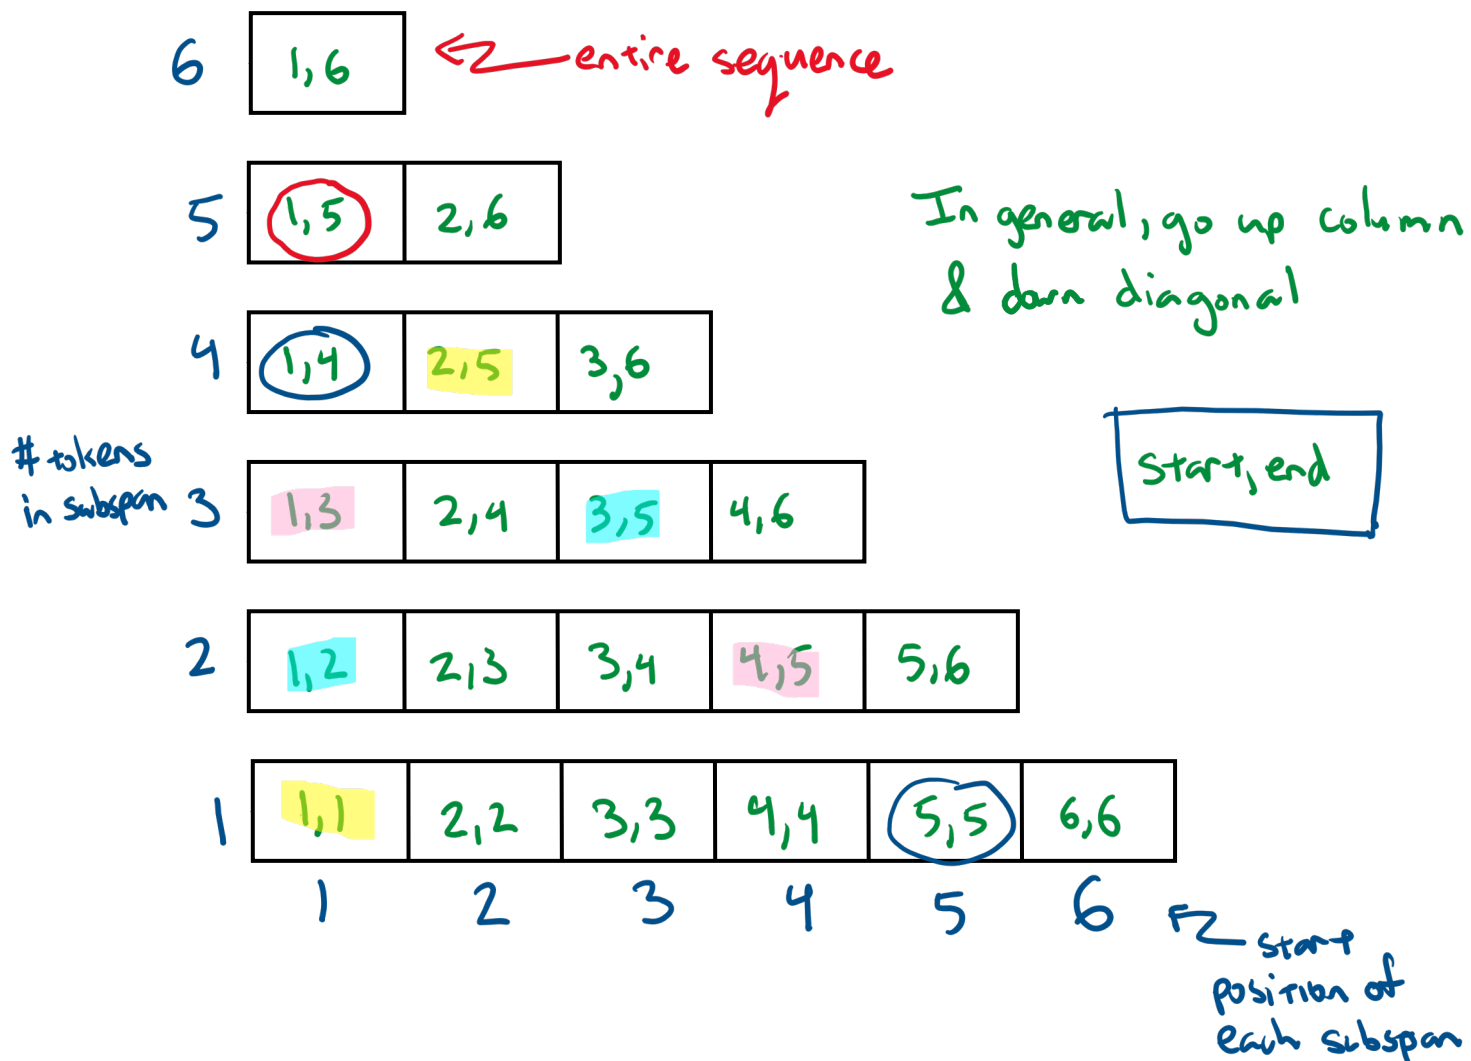 6 1,6 entire sequence
5 1,5 2,6
In general, go up column
& down diagonal
4 1,4 2,5 3,6
start, end
# tokens
in subspan
3 1,3 2,4 3,5 4,6
2 1,2 2,3 3,4 4,5 5,6
1 1,1 2,2 3,3 4,4 5,5 6,6
1 2 3 4 5 6
start
position of
each subspan